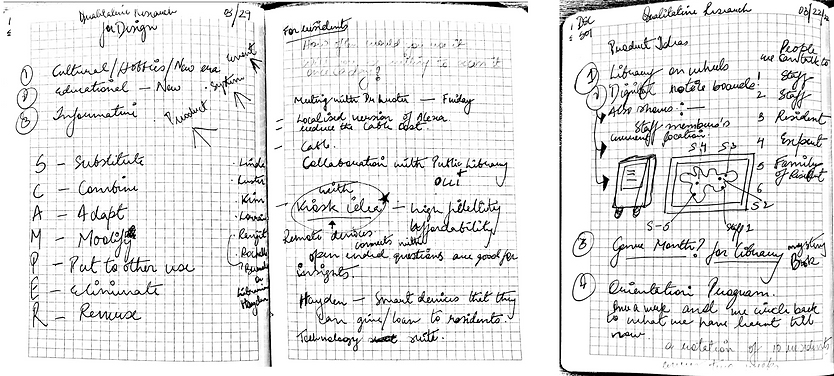 Qualitative Research
for Design
03/29
① Cultural/Hobbies/New era
② Educational — New
③ Informative
Current
System
Product
S — Substitute
C — Combine
A — Adapt
M — Modify
P — Put to other use
E — Eliminate
R — Reverse
Hayden
For residents
How often would you use it
Meeting with Dr Luster — Friday
— Localised version of Alexa.
— reduce the Cable cost.
— Cable.
Collaboration with Public Library
+
OLLI
with
— Kiosk idea — high fidelity
affordability
Remote devices
connects with
open ended questions are good for
insights.
Hayden — Smart devices that they
can give/loan to residents.
Technology suite.
Qualitative Research
03/22/2
Product Ideas
① Library on wheels
② Digital notice boards.
Also shows :—
Staff member's
current location.
People
we can talk to
1 Staff
2 Staff
3 Resident
4 Expert
5 Family
of Resident
6
S-4
S-3
S-2
S-5
Staff 1
③ Genre Month? for library
mystery
Book
④ Orientation Program.
once a week and we circle back
to what we have learnt till
now.
a rotation of 10 residents